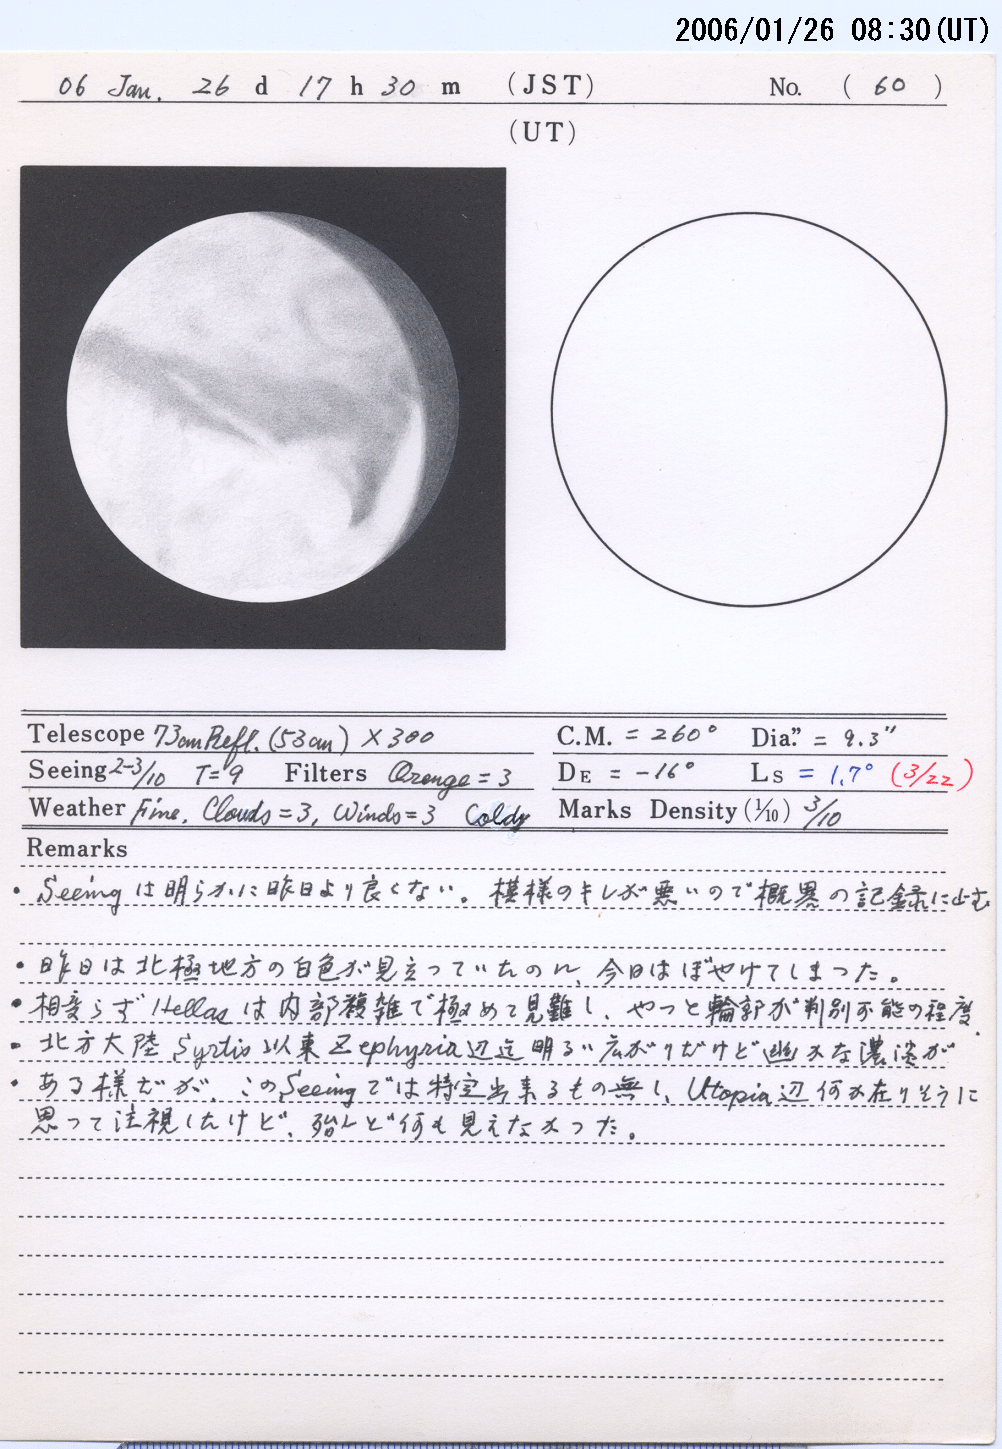 2006/01/26 08:30(UT)
06 Jan. 26 d 17 h 30 m (JST) No. ( 60 )
(UT)
Telescope 73cm Refl. (53cm) × 300
C.M. = 260° Dia." = 9.3"
Seeing 2-3/10 T=9 Filters Orange = 3
DE = -16° Ls = 1.7° (3/22)
Weather Fine, Clouds=3, Winds=3 Coldy
Marks Density (1/10) 3/10
Remarks
• Seeing は明らかに昨日より良くない。模様のキレが悪いので概略の記録に止む
• 昨日は北極地方の白色が見立っていたのに、今日はぼやけてしまった。
• 相変らず Hellas は内部複雑で極めて見難し、やっと輪郭が判別可能の程度.
• 北方大陸 Syrtis 以東 Zephyria 辺迄明るい広がりだけど幽かな濃淡が
• ある様だが、このSeeingでは特定出来るもの無し、Utopia辺何か在りそうに
思って注視したけど、殆んど何も見えなかった。